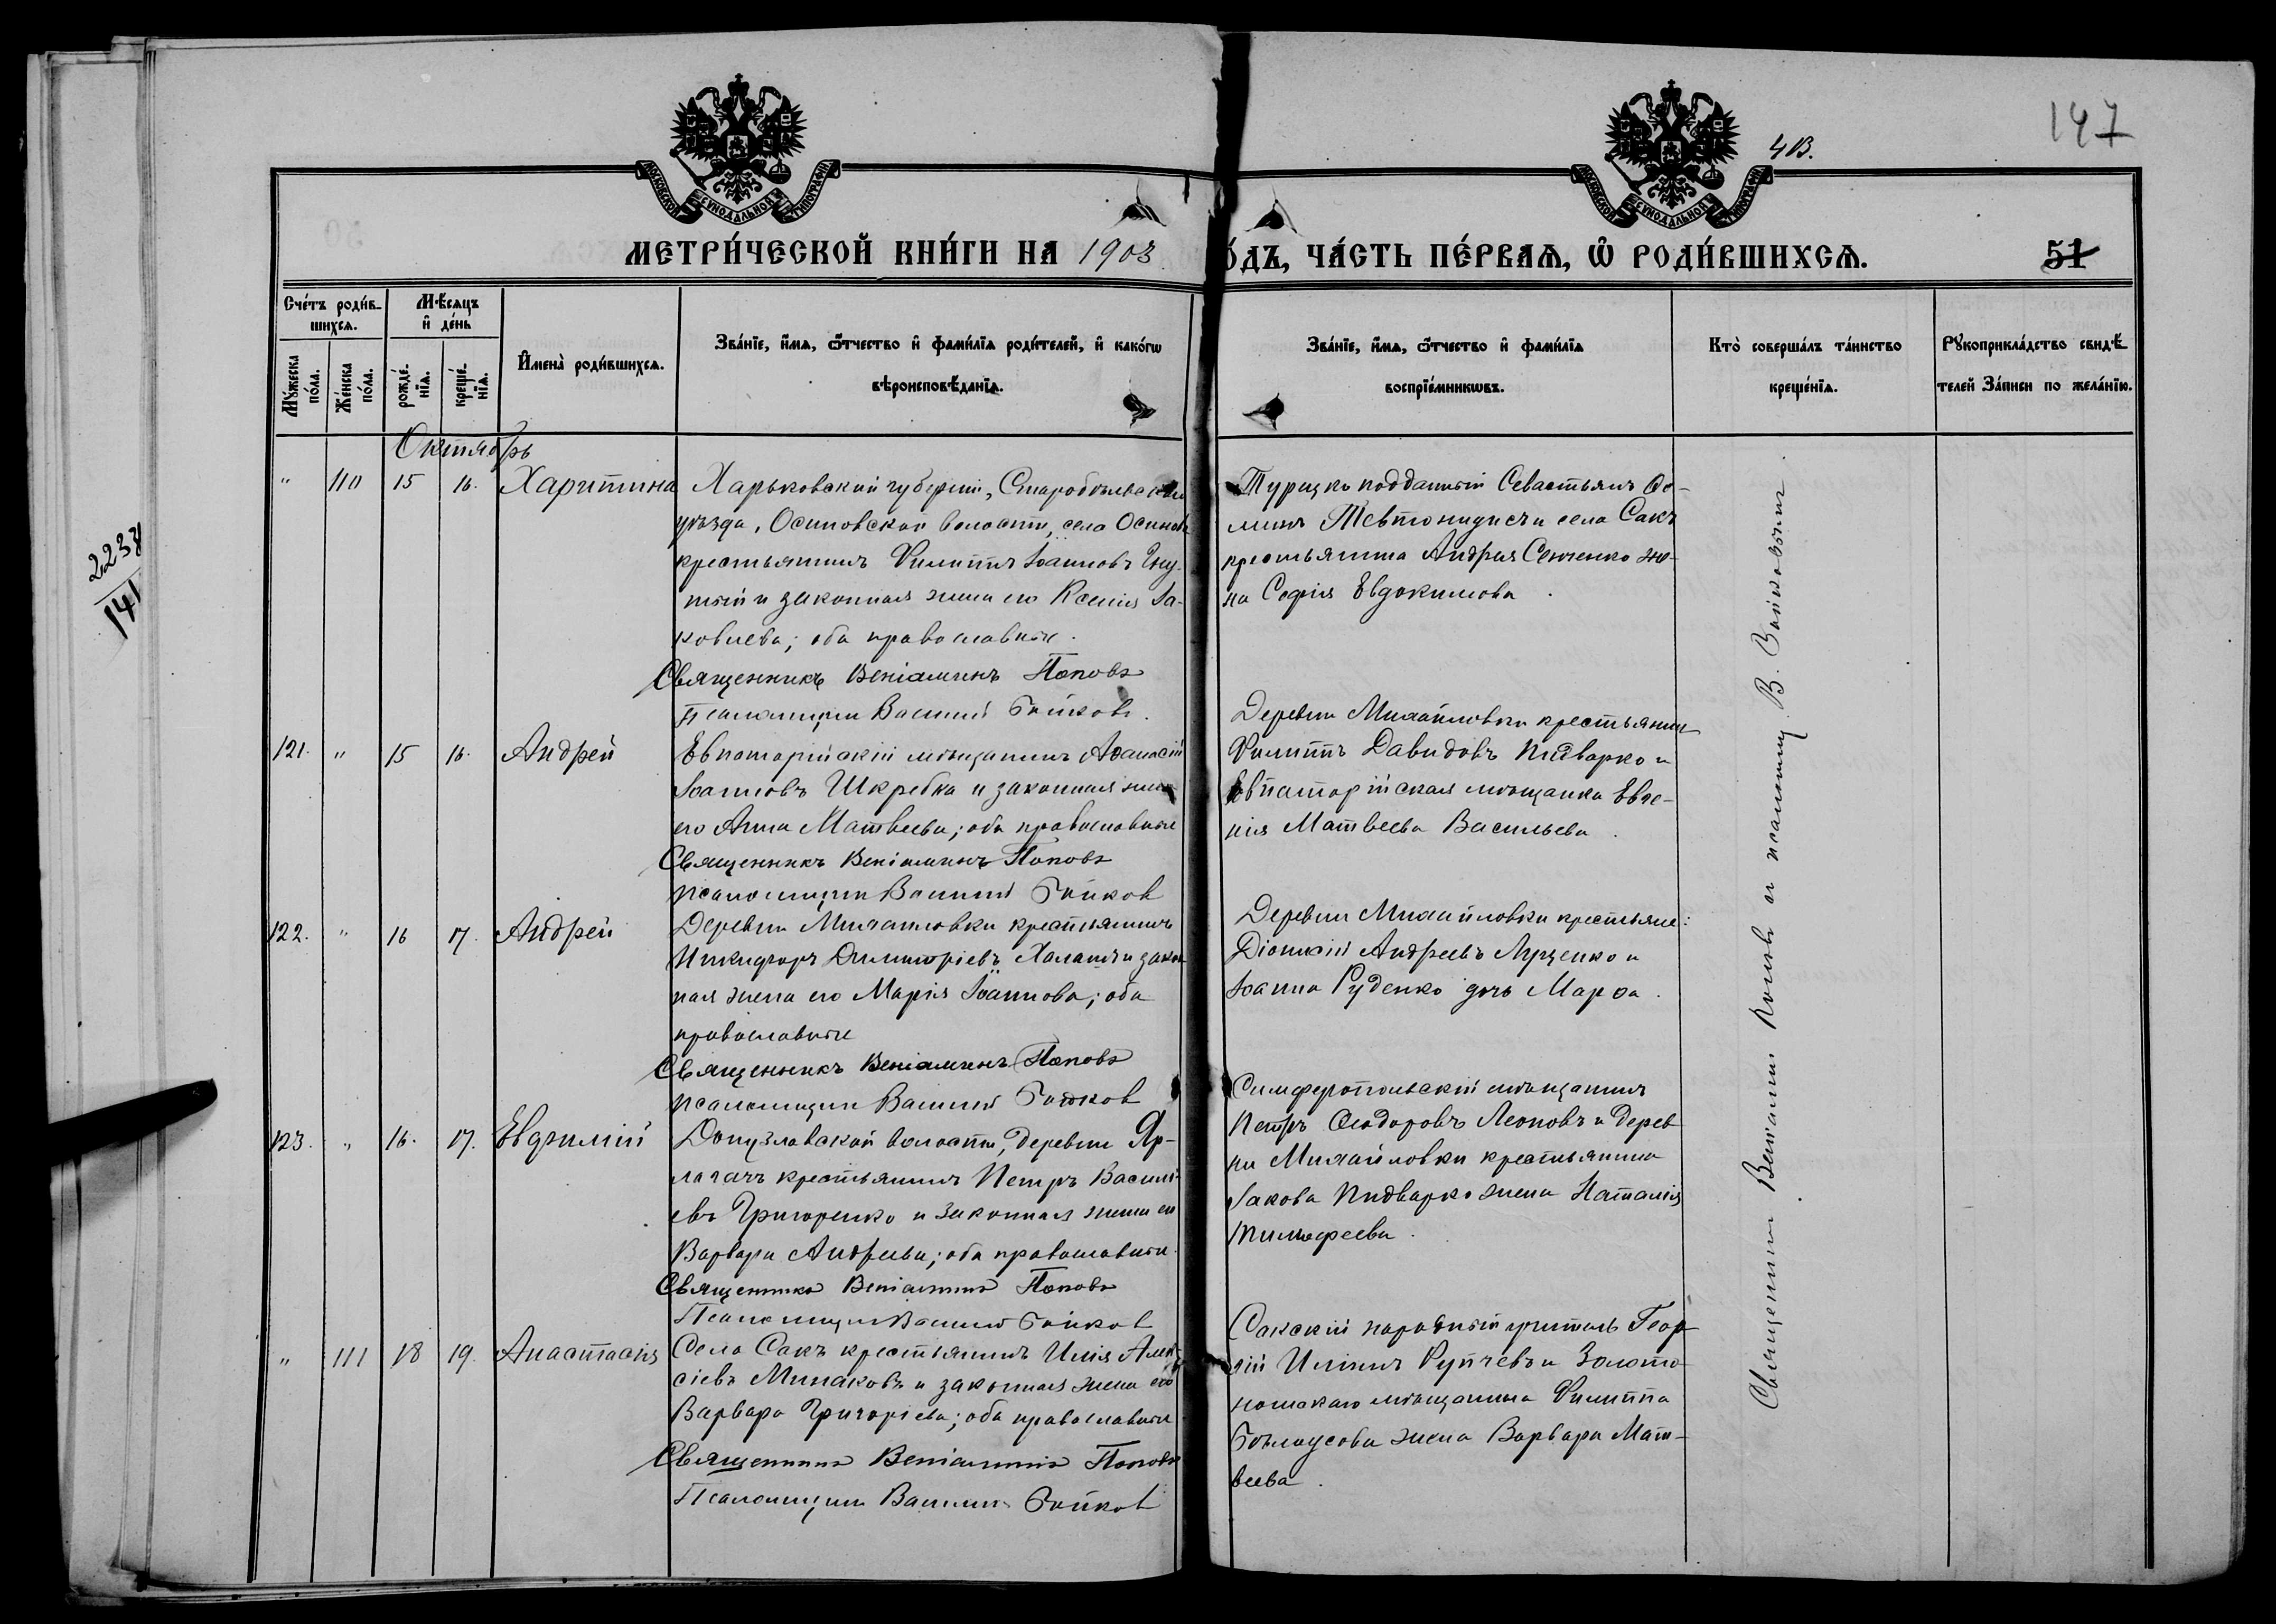 147
4В.
МОСКОВСКОЙ СѴНОДАЛЬНОЙ ТИПОГРАФІИ
МОСКОВСКОЙ СѴНОДАЛЬНОЙ ТИПОГРАФІИ
МЕТРИ́ЧЕСКОЙ КНИ́ГИ НА 1903 О́ДЪ, ЧА́СТЬ ПЕ́РВАѦ, Ѽ РОДИ́ВШИХСѦ. 51
Сче́тъ роди́в-
шихсѧ.
Мꙋ́жеска по́ла.
Же́нска по́ла.
Мѣ́сѧцъ и҆ де́нь
рожде́нїѧ.
креще́нїѧ.
И҆мена̀ роди́вшихсѧ.
Зва́нїе, и҆́мѧ, ѻ҆́тчество и҆ фами́лїѧ роди́телей, и҆ како́гѡ
вѣроисповѣ́данїѧ.
Зва́нїе, и҆́мѧ, ѻ҆́тчество и҆ фами́лїѧ
воспрїе́мникѡвъ.
Кто̀ соверша́лъ та́инство
креще́нїѧ.
Рꙋкоприкла́дство свидѣ́-
телей За́писи по жела́нїю.
2238
141
Октябрь
" 110 15 16. Харитина
Харьковской губерніи, Старобѣльскаго
уѣзда, Осиновской волости, села Осинова
крестьянинъ Филиппъ Іоанновъ Гну-
тый и законная жена его Ксенія Іа-
ковлева; оба православные.
Священникъ Веніаминъ Поповъ
Псаломщикъ Василій Бойковъ.
Турецко подданный Севастьянъ Ѳо-
минъ и села Сакъ
крестьянина Андрея Сенченко же-
на Софія Евдокимова.
121. " 15 16. Андрей
Евпаторійскій мѣщанинъ Аѳанасій
Іоанновъ Шкребка и законная жена
его Анна Матвеева; оба православные
Священникъ Веніаминъ Поповъ
псаломщикъ Василій Бойков
Деревни Михайловки крестьянинъ
Филиппъ Давидовъ Пидварко и
Евпаторійская мѣщанка Евге-
нія Матвеева Васильева.
122. " 16 17. Андрей
Деревни Михайловки крестьянинъ
Никифоръ Димитріевъ и закон-
ная жена его Марія Іоаннова; оба
православные
Священникъ Веніаминъ Поповъ
псаломщикъ Василій Бойков
Деревни Михайловки крестьяне:
Діонисій Андреевъ Луценко и
Іоанна Руденко дочь Марѳа.
123. " 16. 17. Евфимій
Донузлавской волости, деревни Яр-
лагачъ крестьянинъ Петръ Василі-
евъ Григоренко и законная жена его
Варвара Андреева; оба православные.
Священникъ Веніаминъ Поповъ
Псаломщикъ Василій Бойков
Симферопольскій мѣщанинъ
Петръ Ѳеодоровъ Леоновъ и дерев-
ни Михайловки крестьянина
Іакова Пидварко жена Наталія
Тимофеева.
" 111 18 19. Анастасія
Села Сакъ крестьянинъ Илія Алек-
сіевъ Минаковъ и законная жена его
Варвара Григоріева; оба православные
Священникъ Веніаминъ Поповъ
Псаломщикъ Василій Бойков
Сакскій народный учитель Геор-
гій Иліинъ Рупчевъ и Золото-
ношскаго мѣщанина Филиппа
Бѣлоусова жена Варвара Мат-
веева.
Священникъ Веніаминъ Поповъ и псаломщ. В. Бойковымъ.